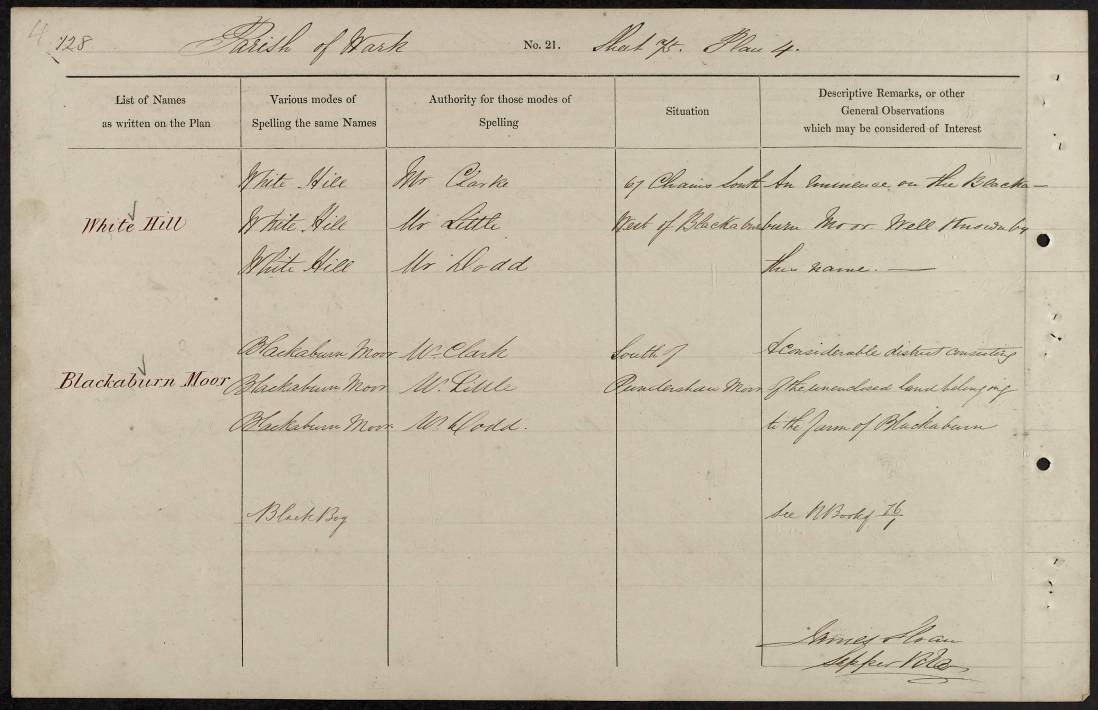 4
128 Parish of Wark No. 21. Sheet 75. Plan 4.
List of Names
as written on the Plan
Various modes of
Spelling the same Names
Authority for those modes of
Spelling
Situation
Descriptive Remarks, or other
General Observations
which may be considered of Interest
White Hill
White Hill Mr Clarke
White Hill Mr Little
White Hill Mr Dodd
67 Chains South
West of Blackaburn
An eminence on the Blacka-
burn Moor Well Known by
the name. —
Blackaburn Moor
Blackaburn Moor Mr Clark
Blackaburn Moor Mr. Little
Blackaburn Moor Mr Dodd.
South of
Pundershaw Moor
A Considerable district consisting
of the unenclosed land belonging
to the farm of Blackaburn
Black Bog
see N Book of 76/1
James Sloan
Sapper RE